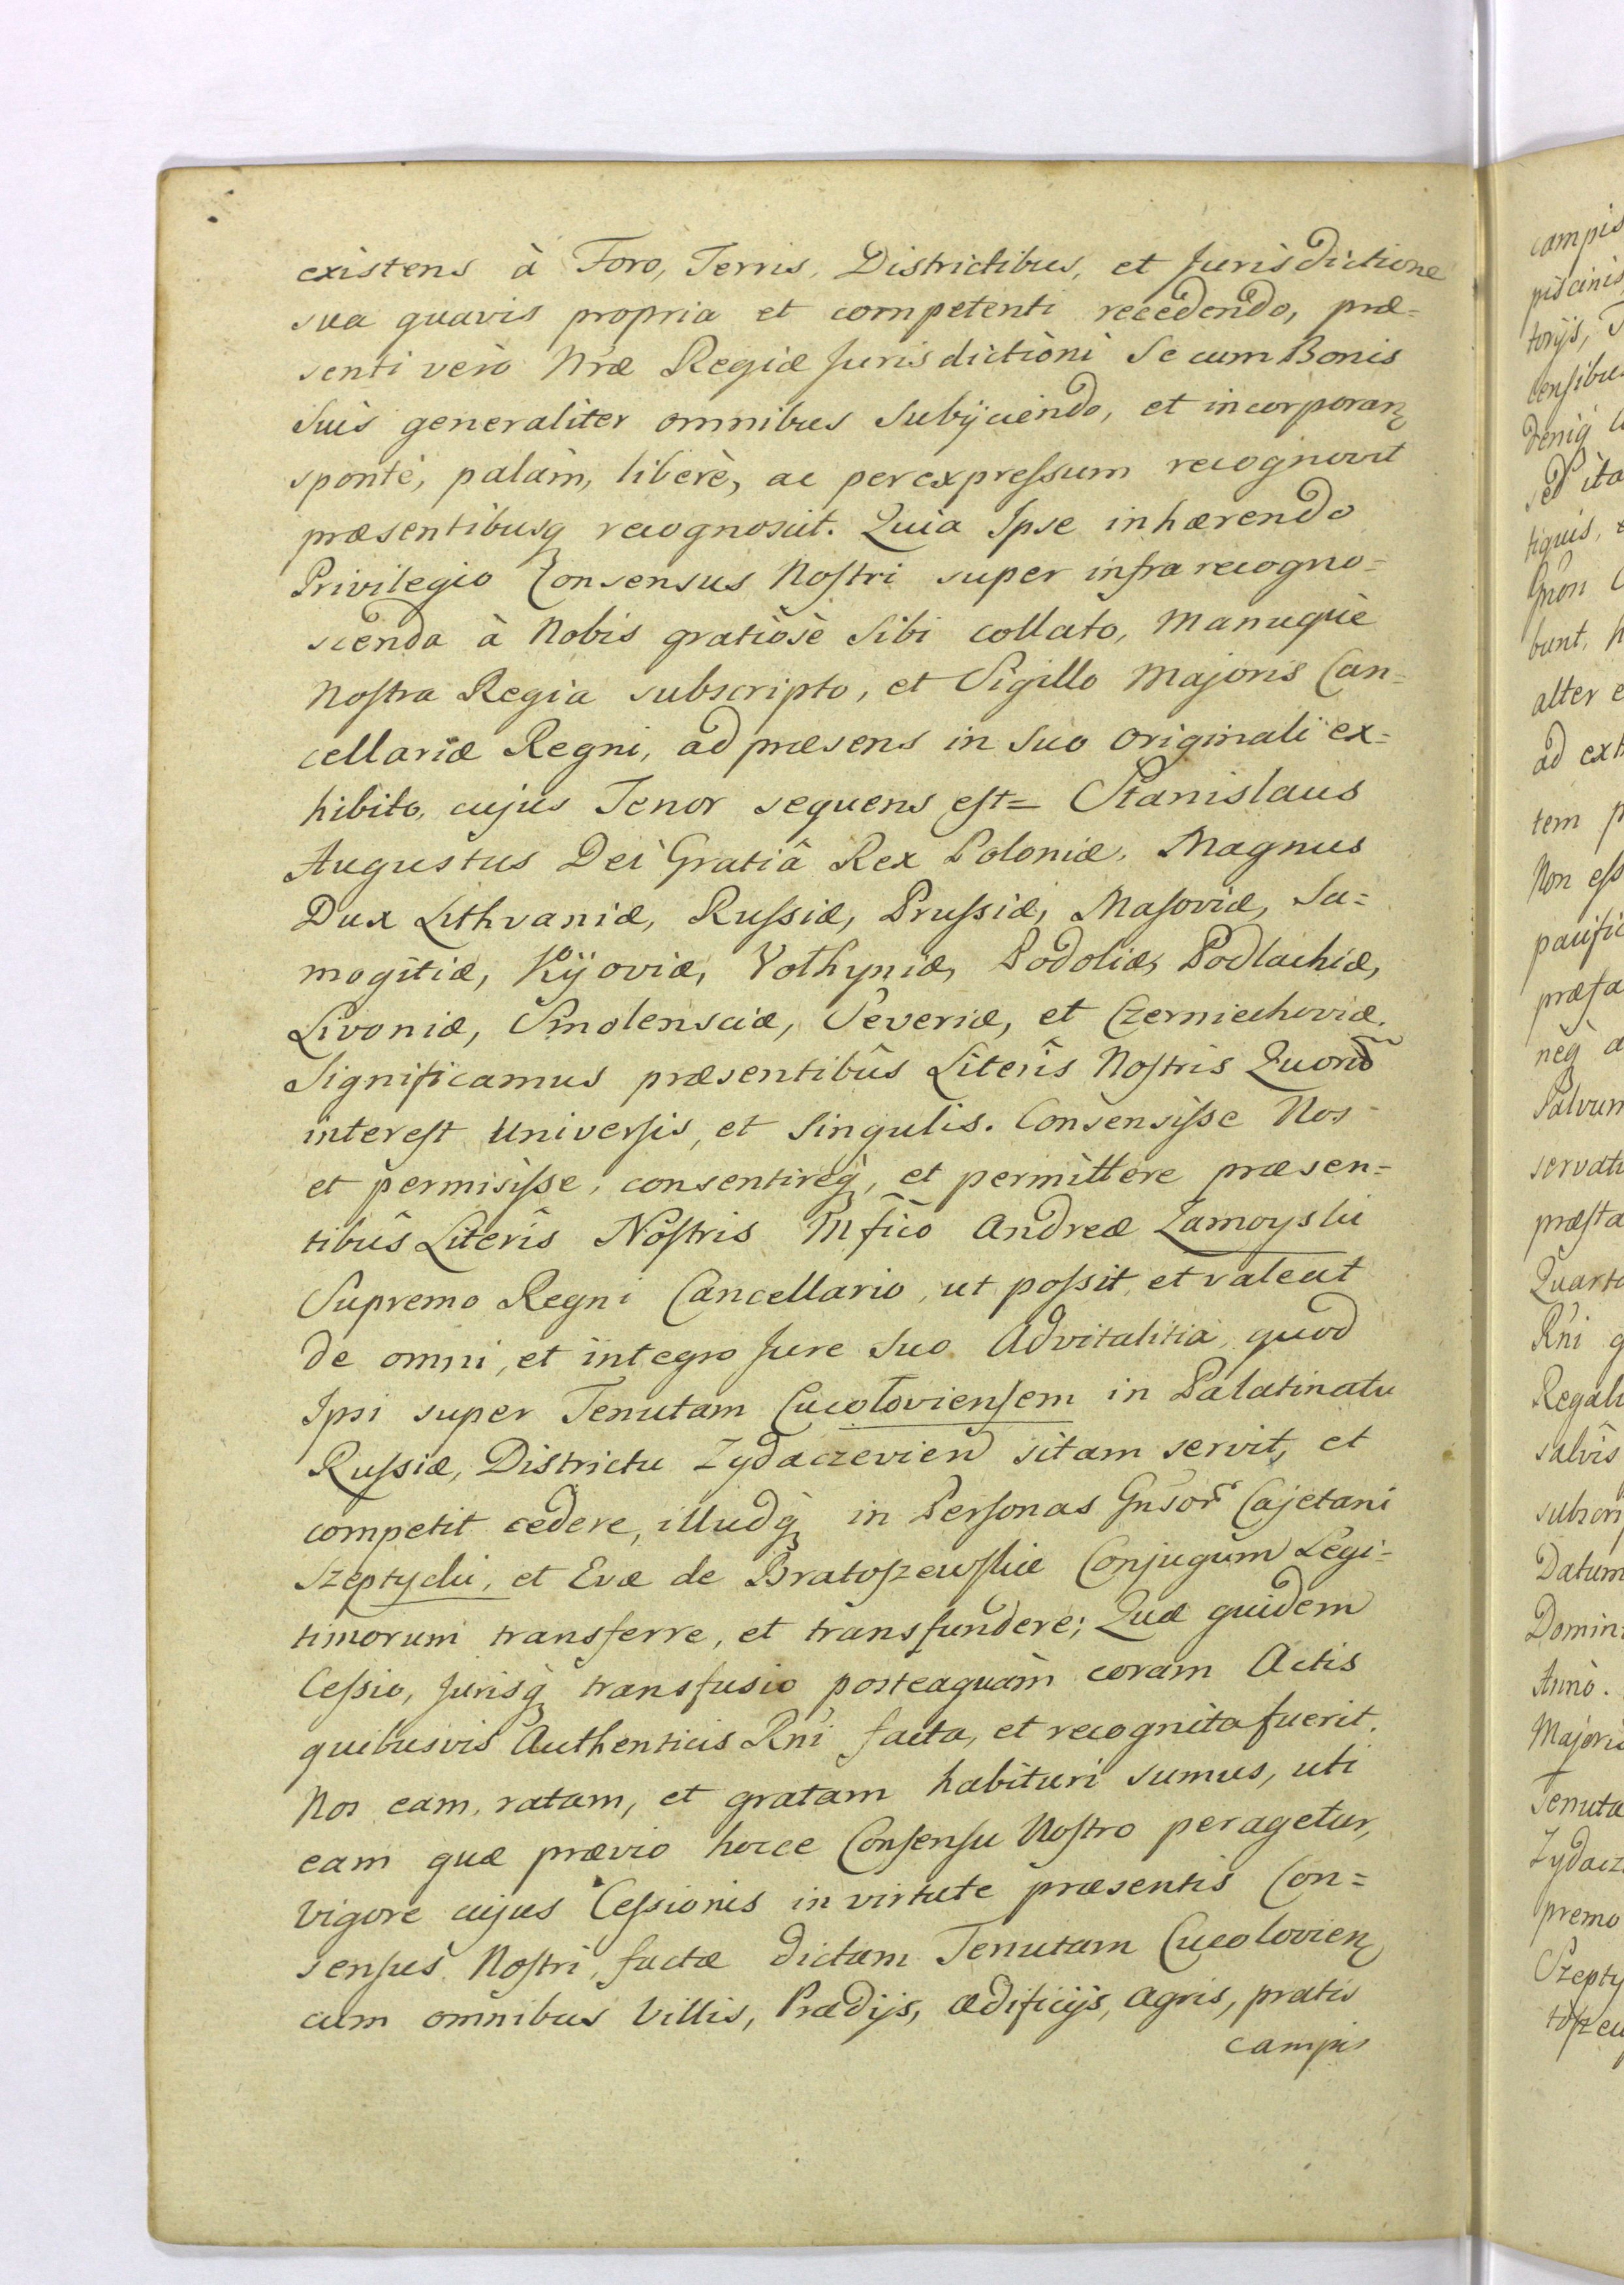 existens à Foro, Terris, Districtibus, et Jurisdictione
sua quavis propria et competenti recedendo, præ=
senti verò Nræ Regiæ Jurisdictioni Se cum Bonis
Suis generaliter omnibus Subijciendo, et incorporan
spontè, palàm, liberè, ac per expressum recognovit
præsentibusq recognoscit. Quia Ipse inhærendo
Privilegio Consensus Nostri super infra recogno=
scenda à Nobis gratiosè Sibi collato, Manuquè
Nostra Regia subscripto, et Sigillo Majoris Can=
cellariæ Regni, ad præsens in Suo Originali ex=
hibito, cujus Tenor sequens est= Stanislaus
Augustus Dei Gratiâ Rex Poloniæ, Magnus
Dux Lithvaniæ, Russiæ, Prussiæ, Masoviæ, Sa=
mogitiæ, Kijoviæ, Volhyniæ, Podoliæ, Podlachiæ,
Livoniæ, Smolensciæ, Severiæ, et Czerniechoviæ.
Significamus præsentibûs Literîs Nostris Quorũ
interest Universis, et Singulis. Consensisse Nos
et permisisse, consentireq́, et permittere præsen=
tibûs Literîs Nostris Mfico Andreæ Zamoyski
Supremo Regni Cancellario, ut possit, et valeat
de omni, et integro Jure Suo Advitalitio, quod
Ipsi super Tenutam Cucoloviensem in Palatinatu
Russiæ, Districtu Zydaczevien sitam servit, et
competit cedere, illudq́ in Personas Gnsor̃ Cajetani
Szeptycki, et Evæ de Bratoszewskie Conjugum Legi=
timorum transferre, et transfundere; Quæ quidem
Cessio, Jurisq́ transfusio posteaquàm coram Actis
quibusvis Authenticis Rni facta, et recognita fuerit.
Nos eam, ratam, et gratam habituri sumus, uti
eam quæ prævio hocce Consensu Nostro peragetur,
vigore cujus Cessionis in virtute præsentis Con=
sensus Nostri, factæ dictam Tenutam Cucolovien
cum omnibus Villis, Prædijs, ædificijs, agris, pratis
campis